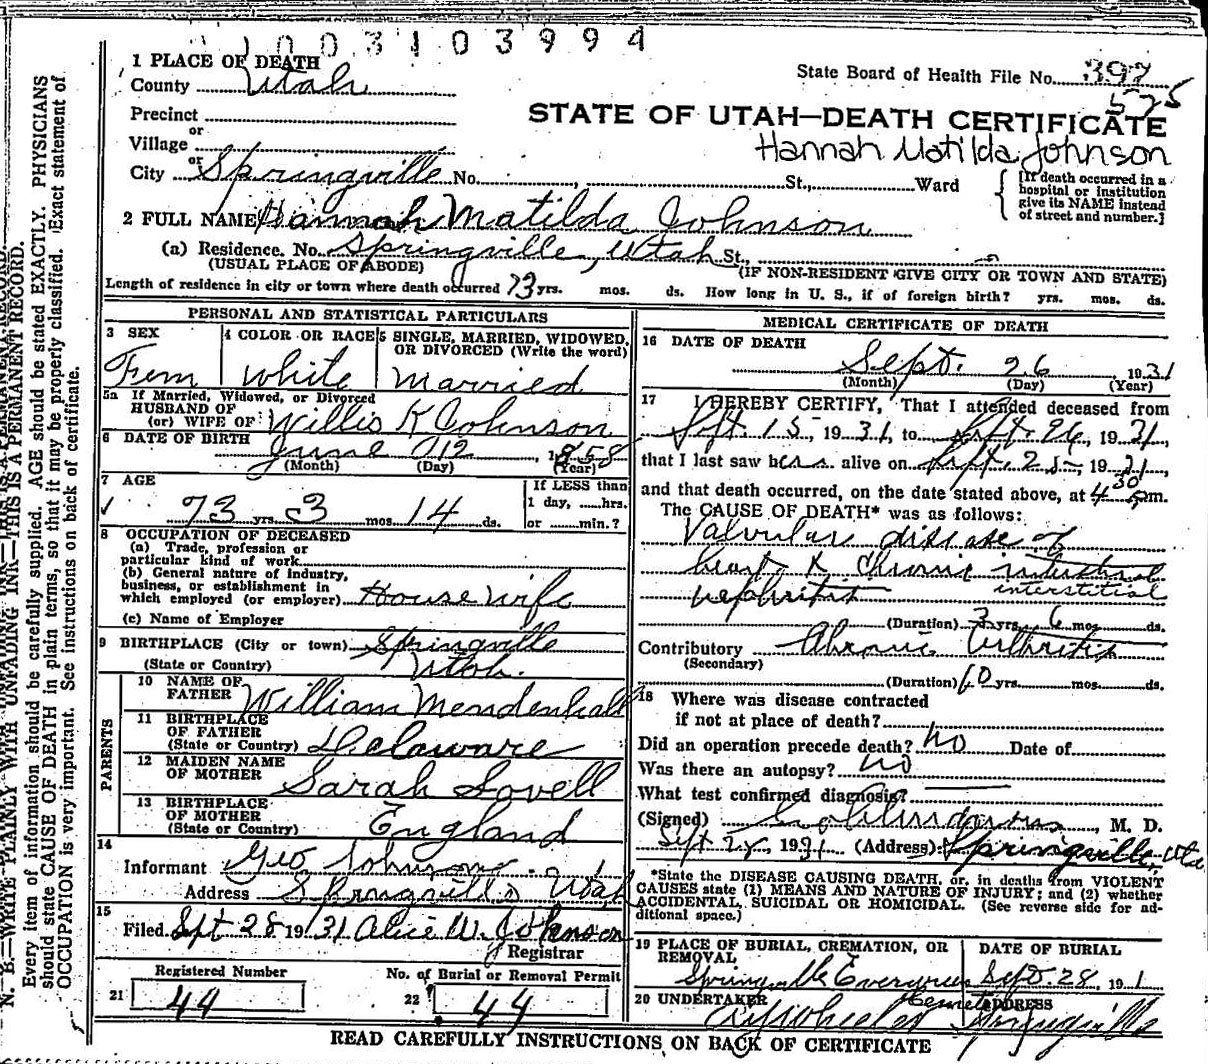 1003103994
1 PLACE OF DEATH
County Utah
State Board of Health File No. 397
525
Precinct
or
Village
or
City Springville No. , St., Ward
STATE OF UTAH—DEATH CERTIFICATE
Hannah Matilda Johnson
[If death occurred in a
hospital or institution
give its NAME instead
of street and number.]
2 FULL NAME Hannah Matilda Johnson
(a) Residence. No. Springville, Utah St.,
(USUAL PLACE OF ABODE) (IF NON-RESIDENT GIVE CITY OR TOWN AND STATE)
Length of residence in city or town where death occurred 73 yrs. mos. ds. How long in U. S., if of foreign birth? yrs. mos. ds.
PERSONAL AND STATISTICAL PARTICULARS
3 SEX
Fem
4 COLOR OR RACE
White
5 SINGLE, MARRIED, WIDOWED,
OR DIVORCED (Write the word)
Married
5a If Married, Widowed, or Divorced
HUSBAND OF
(or) WIFE OF Willis K Johnson
6 DATE OF BIRTH
June 12, 1858
(Month) (Day) (Year)
7 AGE
73 yrs. 3 mos. 14 ds.
If LESS than
1 day, hrs.
or min.?
8 OCCUPATION OF DECEASED
(a) Trade, profession or
particular kind of work
(b) General nature of industry,
business, or establishment in
which employed (or employer) Housewife
(c) Name of Employer
9 BIRTHPLACE (City or town) Springville
(State or Country) Utah.
PARENTS
10 NAME OF
FATHER William Mendenhall
11 BIRTHPLACE
OF FATHER
(State or Country) Delaware
12 MAIDEN NAME
OF MOTHER Sarah Lovell
13 BIRTHPLACE
OF MOTHER
(State or Country) England
14
Informant Geo Johnson
Address Springville Utah
15
Filed Sept 28 1931 Alice W. Johnson
Registrar
Registered Number
21 44
No. of Burial or Removal Permit
22 44
MEDICAL CERTIFICATE OF DEATH
16 DATE OF DEATH
Sept. 26 1931
(Month) (Day) (Year)
17 I HEREBY CERTIFY, That I attended deceased from
Sept. 15 - 1931, to Sept. 26, 1931,
that I last saw her alive on Sept. 25-, 1931,
and that death occurred, on the date stated above, at 4 30 m.
The CAUSE OF DEATH* was as follows:
Valvular disease of
heart & Chronic interstitial
nephritis interstitial
(Duration) 3 yrs. 6 mos. ds.
Contributory Chronic Arthritis
(Secondary)
(Duration) 10 yrs. mos. ds.
18 Where was disease contracted
if not at place of death?
Did an operation precede death? no Date of
Was there an autopsy? no
What test confirmed diagnosis?
(Signed) , M. D.
Sept 28, 1931 (Address) Springville, Utah
*State the DISEASE CAUSING DEATH, or, in deaths from VIOLENT
CAUSES state (1) MEANS AND NATURE OF INJURY; and (2) whether
ACCIDENTAL, SUICIDAL OR HOMICIDAL. (See reverse side for ad-
ditional space.)
19 PLACE OF BURIAL, CREMATION, OR
REMOVAL
Springville Evergreen
Cemetery
DATE OF BURIAL
Sept. 28, 191
20 UNDERTAKER
A Y Wheeler
ADDRESS
Springville
READ CAREFULLY INSTRUCTIONS ON BACK OF CERTIFICATE
N. B.—WRITE PLAINLY WITH UNFADING INK—THIS IS A PERMANENT RECORD.
Every item of information should be carefully supplied. AGE should be stated EXACTLY. PHYSICIANS
should state CAUSE OF DEATH in plain terms, so that it may be properly classified. Exact statement of
OCCUPATION is very important. See instructions on back of certificate.